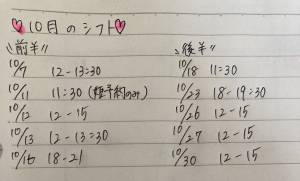 ♡10月のシフト♡
前半
10/7 12-13:30
10/11 11:30 (予約のみ)
10/12 12-15
10/13 12-13:30
10/16 18-21
後半
10/18 11:30
10/23 18-19:30
10/26 12-15
10/27 12-15
10/30 12-15